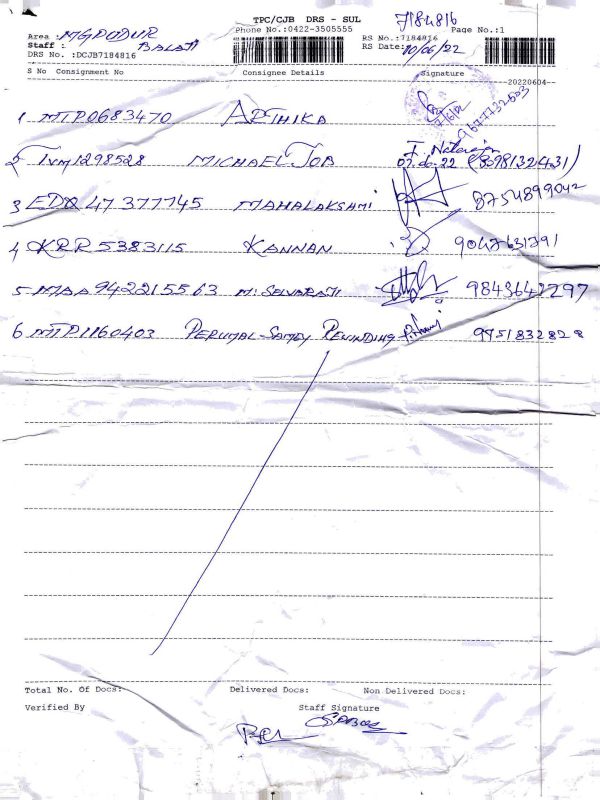 TPC/CJB DRS - SUL 7184816
Area : MGPUDUR Phone No.:0422-3505555 Page No.:1
Staff : BALAJI RS No.:7184816
DRS No. :DCJB7184816 RS Date: 10/06/22
S No Consignment No Consignee Details Signature
20220604
1 MTP0683470 ARTHIKA 9677732603
2 TVM1298528 MICHAEL JOB J. Natarajan
07.06.22
3 EDX 47377745 MAHALAKSHMI 8754899042
4 KRR 5383115 KANNAN 9047631391
5 MAA942215563 M. SELVARAJ 9843642297
6 MTP1160403 PERUMAL SAMY REWINDING 9751832828
Total No. Of Docs: Delivered Docs: Non Delivered Docs:
Verified By Staff Signature